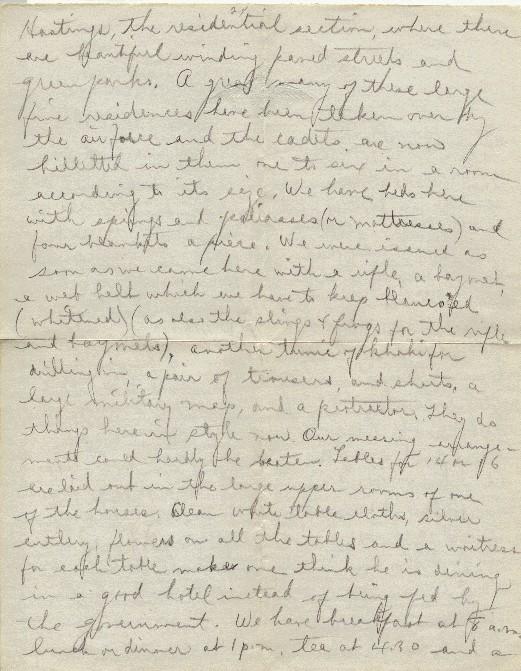 2/
Hastings, the residential section, where there
are beautiful winding paved streets and
green parks. A great many of these large
fine residences have been taken over by
the air force and the cadets are now
billetted in them one to six in a room
according to its size. We have beds here
with springs and paliasses (or mattresses) and
four blankets a piece. We were issued as
soon as we came here with a rifle, a bayonet,
a web belt which we have to keep blancoed
(whitened) (as also the slings & frogs for the rifle
and bayonets), another tunic of khaki for
drilling in, a pair of trousers, and shirts, a
large military map, and a protractor. They do
things here in style now. Our messing arrange-
ments could hardly be better. Tables for 14 or 16
are laid out in the large upper rooms of one
of the houses. Clean white table cloths, silver
cutlery, flowers on all the tables and a waitress
for each table makes one think he is dining
in a good hotel instead of being fed by
the government. We have breakfast at 8 a.m.
lunch or dinner at 1 p.m., tea at 4.30 and a